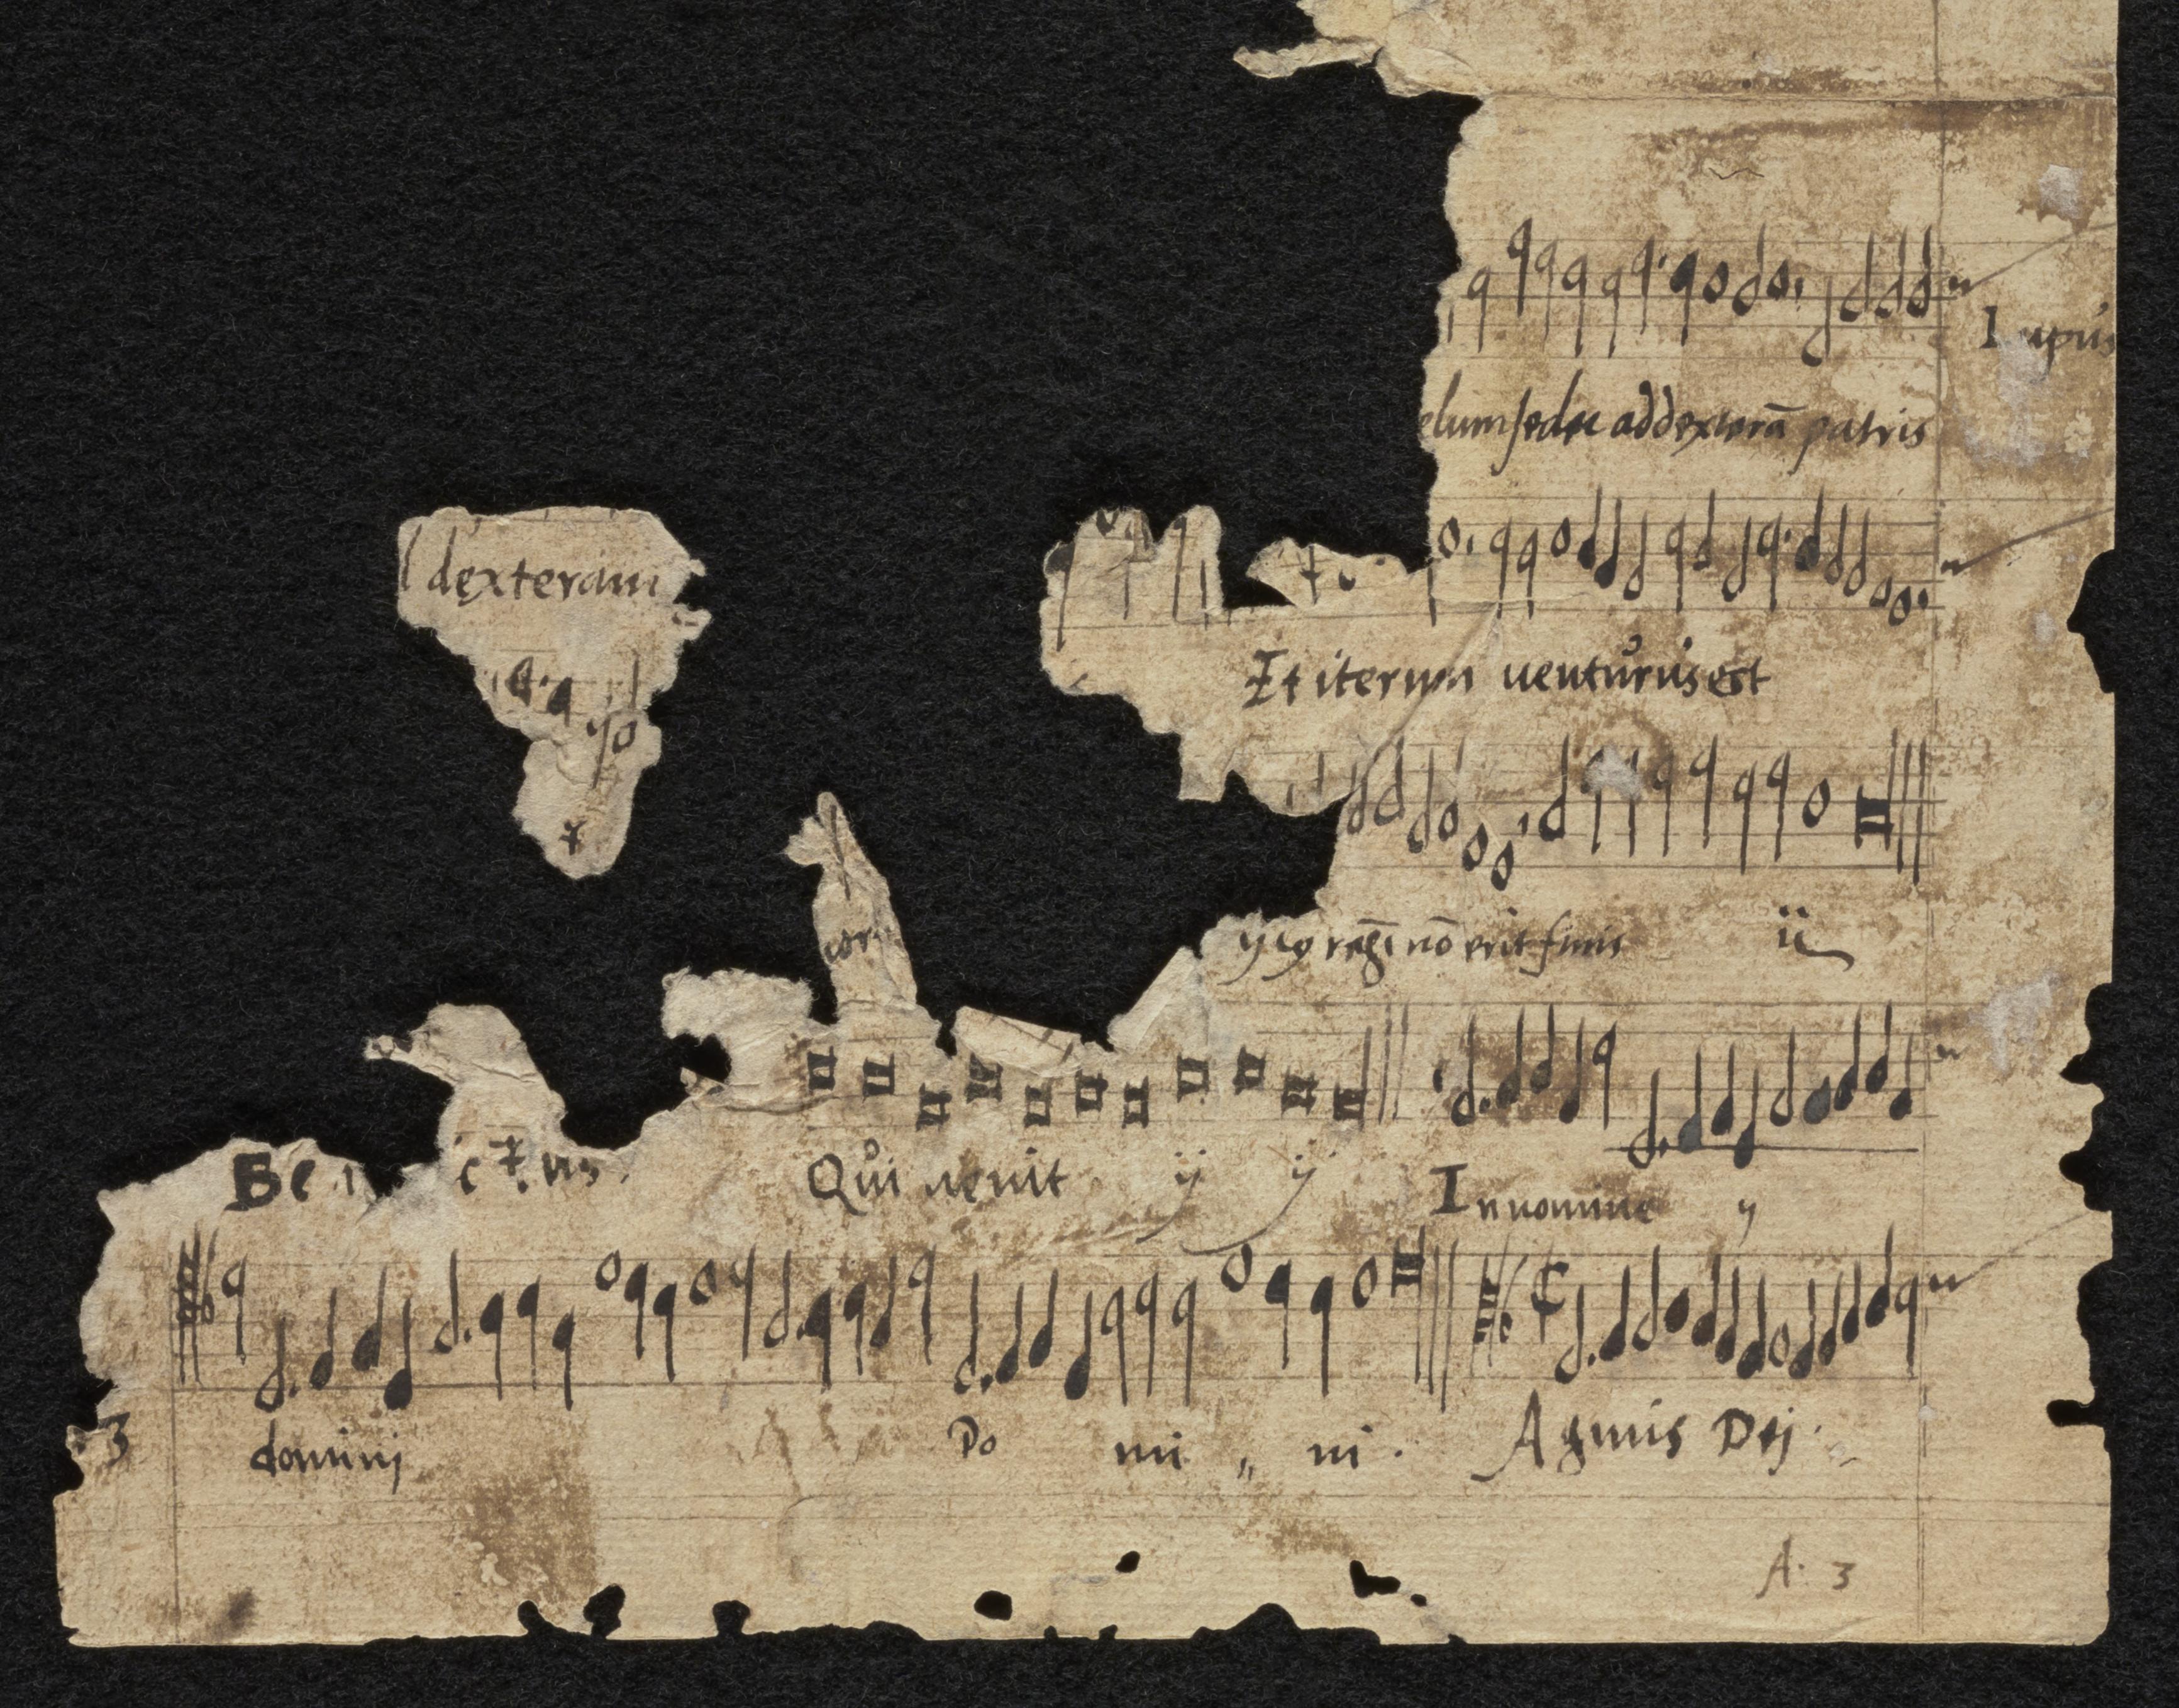 Lupus
elum sedet ad dexterā patris
dexteram
Et iterum uenturus est
regī nō erit finis ij
Be ctus Qui uenit ij ij In nomine ij
3
domini Do mi ni. Agnus Dej.
A. 3